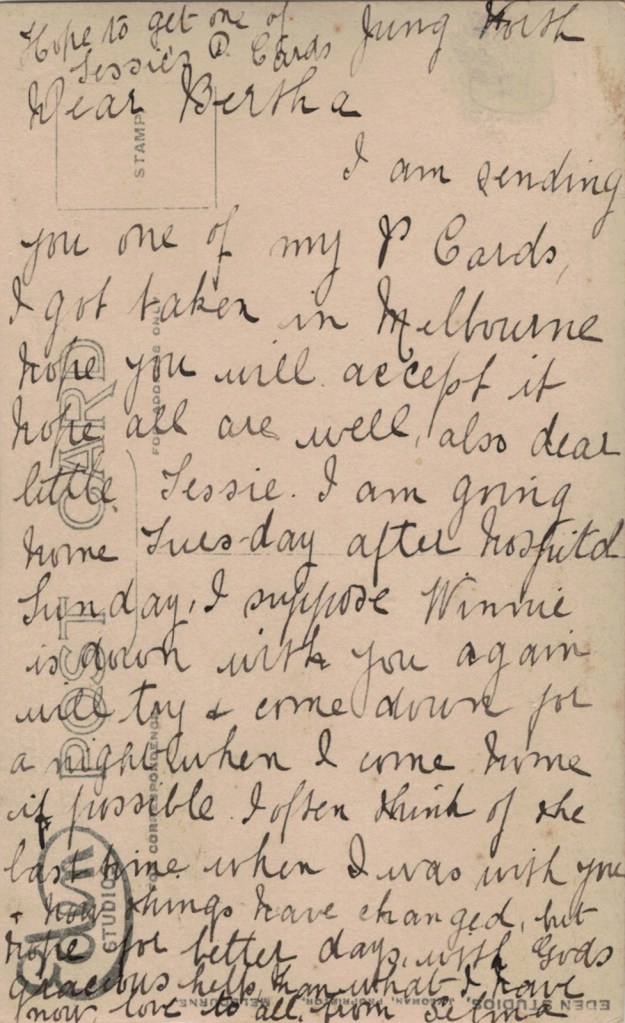 Hope to get one of
Jessie's P. Cards
Jung North
Dear Bertha
STAMP
I am sending
you one of my P Cards,
I got taken in Melbourne
hope you will accept it
hope all are well, also dear
little Jessie. I am going
home Tuesday after hospital
Sunday, I suppose Winnie
is down with you again
will try & come down for
a night when I come home
if possible. I often think of the
last time when I was with you
+ how things have changed, but
hope for better days, with Gods
gracious help, than what I have
now, love to all, from Selma
POST CARD
FOR ADDRESS ONLY
FOR CORRESPONDENCE
STUDIOS
EDEN STUDIOS, PROPRIETOR, MELBOURNE